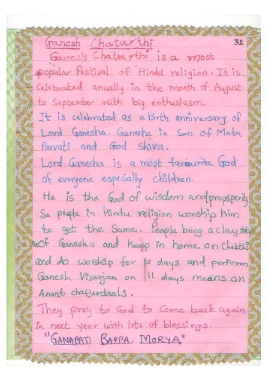 Ganesh Chatarthi
32
Ganesh Chaturthi is a most
popular Festival of Hindu religion. It is
Celebrated anually in the month of August
to September with big enthusiasm.
It is celebrated as a birth anniversary of
Lord Ganesha. Ganesha is Son of Mata
Parvati and God Shiva.
Lord Ganesha is a most favourite God
of everyone especially children.
He is the God of wisdom and prosperity
So people in Hindu religion worship him
to get the Same. People bring a clay
of Ganesha and Keep in home on
and do worship for 10 days and perform
Ganesh Visarjan on 11 days means on
Anant
They pray to God to Come back again
in next year with lots of blessings.
"GANAPATI BAPPA MORYA"